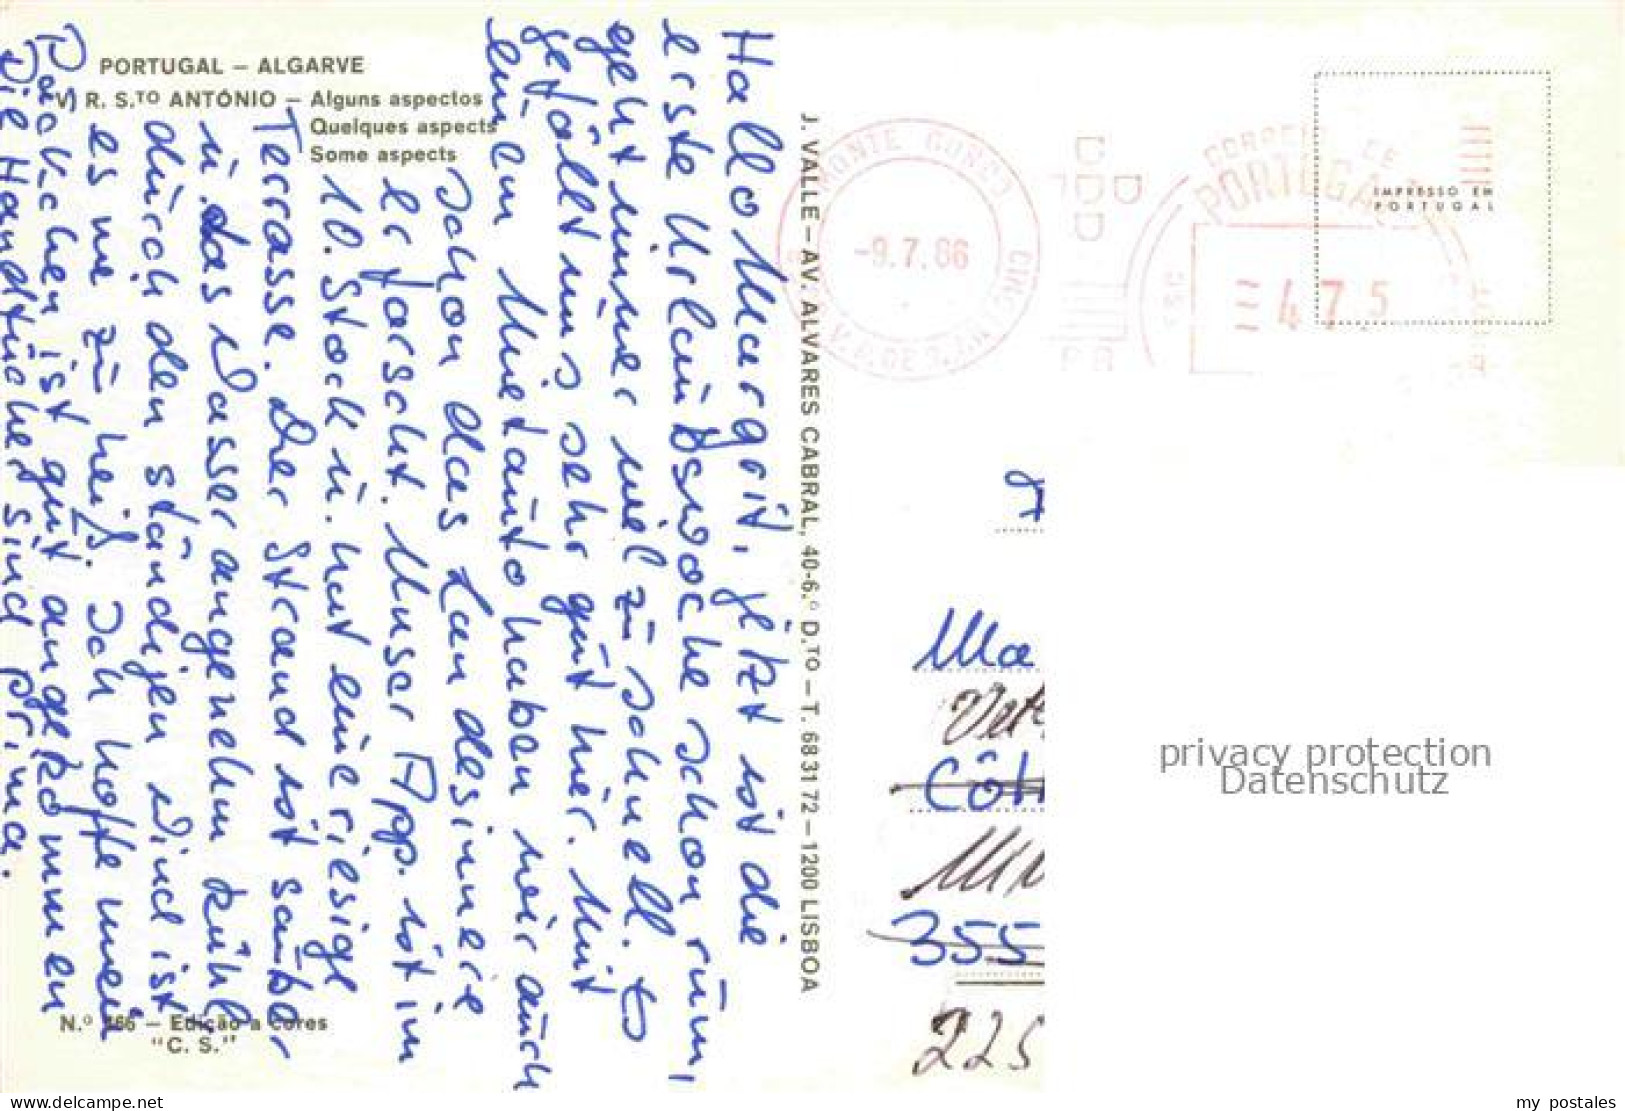 PORTUGAL – ALGARVE
V. R. S.TO ANTÓNIO – Alguns aspectos
Quelques aspects
Some aspects
Hallo Margrit, jetzt ist die
erste Urlaubswoche schon rum,
geht immer viel zu schnell. Es
gefällt uns sehr gut hier. Mit
einem Mietauto haben wir auch
schon das Landesinnere
erforscht. Unser App. ist im
10. Stock u. hat eine riesige
Terrasse. Der Strand ist sauber
u. das Wasser angenehm kühl
durch den ständigen Wind ist
es nie zu heiß. Ich hoffe mein
Päckchen ist gut angekommen
Die Handtücher sind prima.
N.º 466 – Edição a Cores
"C. S."
J. VALLE – AV. ALVARES CABRAL, 40-6.º D.TO – T. 683172 – 1200 LISBOA
MONTE GORDO
-9.7.86
CORREIOS DE
PORTUGAL
=47.5
IMPRESSO EM
PORTUGAL
Ma
Cöl
355
225
privacy protection
Datenschutz
www.delcampe.net
my_postales